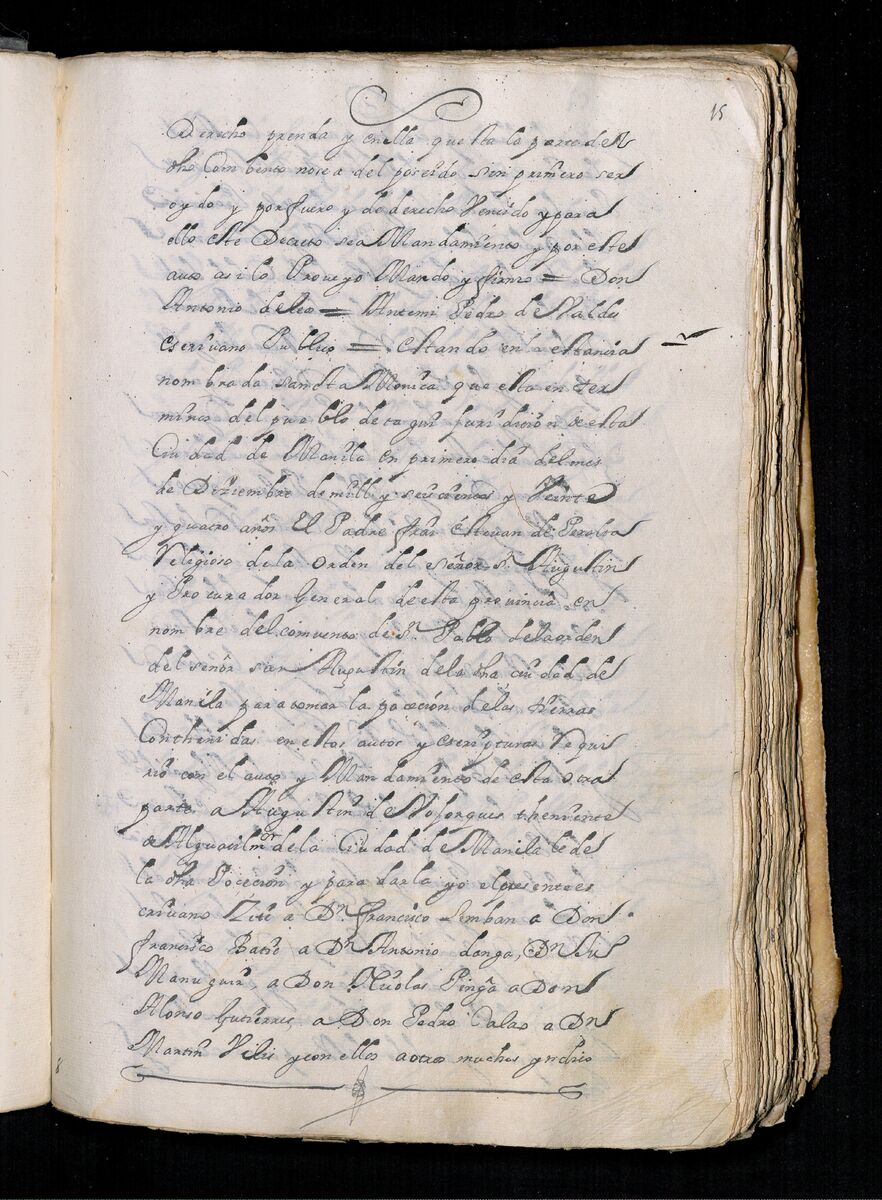 15
Derecho prenda y en ella questa la parte del
dho Combento no sea del poseido sin primero ser
oydo y por fuero y de derecho Vencido y para
ello este Decreto sea Mandamiento y por este
auto asi lo Proveyo Mando y firmo = Don
Antonio de leo = Antemi Pedro de Valdes
escriuano Publico = estando en la estancia
nombrada Sancta Monica que esta en ter
minos del pueblo de tagui Juridicion de esta
Ciudad de Manila en primero dia del mes
de Diziembre de mill y seiscientos y Veinte
y quatro años El Padre frai esteuan de Peralta
Religioso de la orden del señor Sn Augustin
y Procurador General de esta provincia en
nombre del comuento de Sn Pablo de la orden
del señor san Augustin de la dha ciudad de
Manila para tomar la poceción de las tierras
Conthenidas en estos autos y escripturas Requi
rio con el auto y Mandamiento de esta otra
parte a Augustin de theniente
de Alguacil mor de la Ciudad de Manila le de
la dha Poceción y para darla yo el presente es
criuano Zite a Dn Francisco Lemban a Don
Francisco Batio a Dn Antonio longa, Dn
a Don Nicolas Pinga a Don
Alonso Gutierres a Don Pedro Calao a Dn
Martin Vilis y con ellos a otros muchos yndios
8